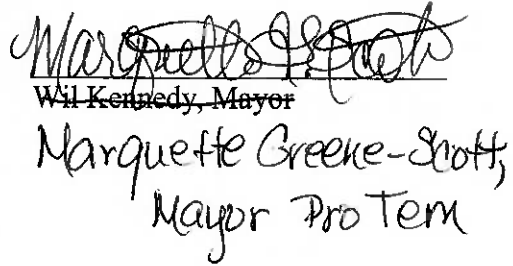 Marquette G. Scott
Wil Kennedy, Mayor
Marquette Greene-Scott,
Mayor Pro Tem